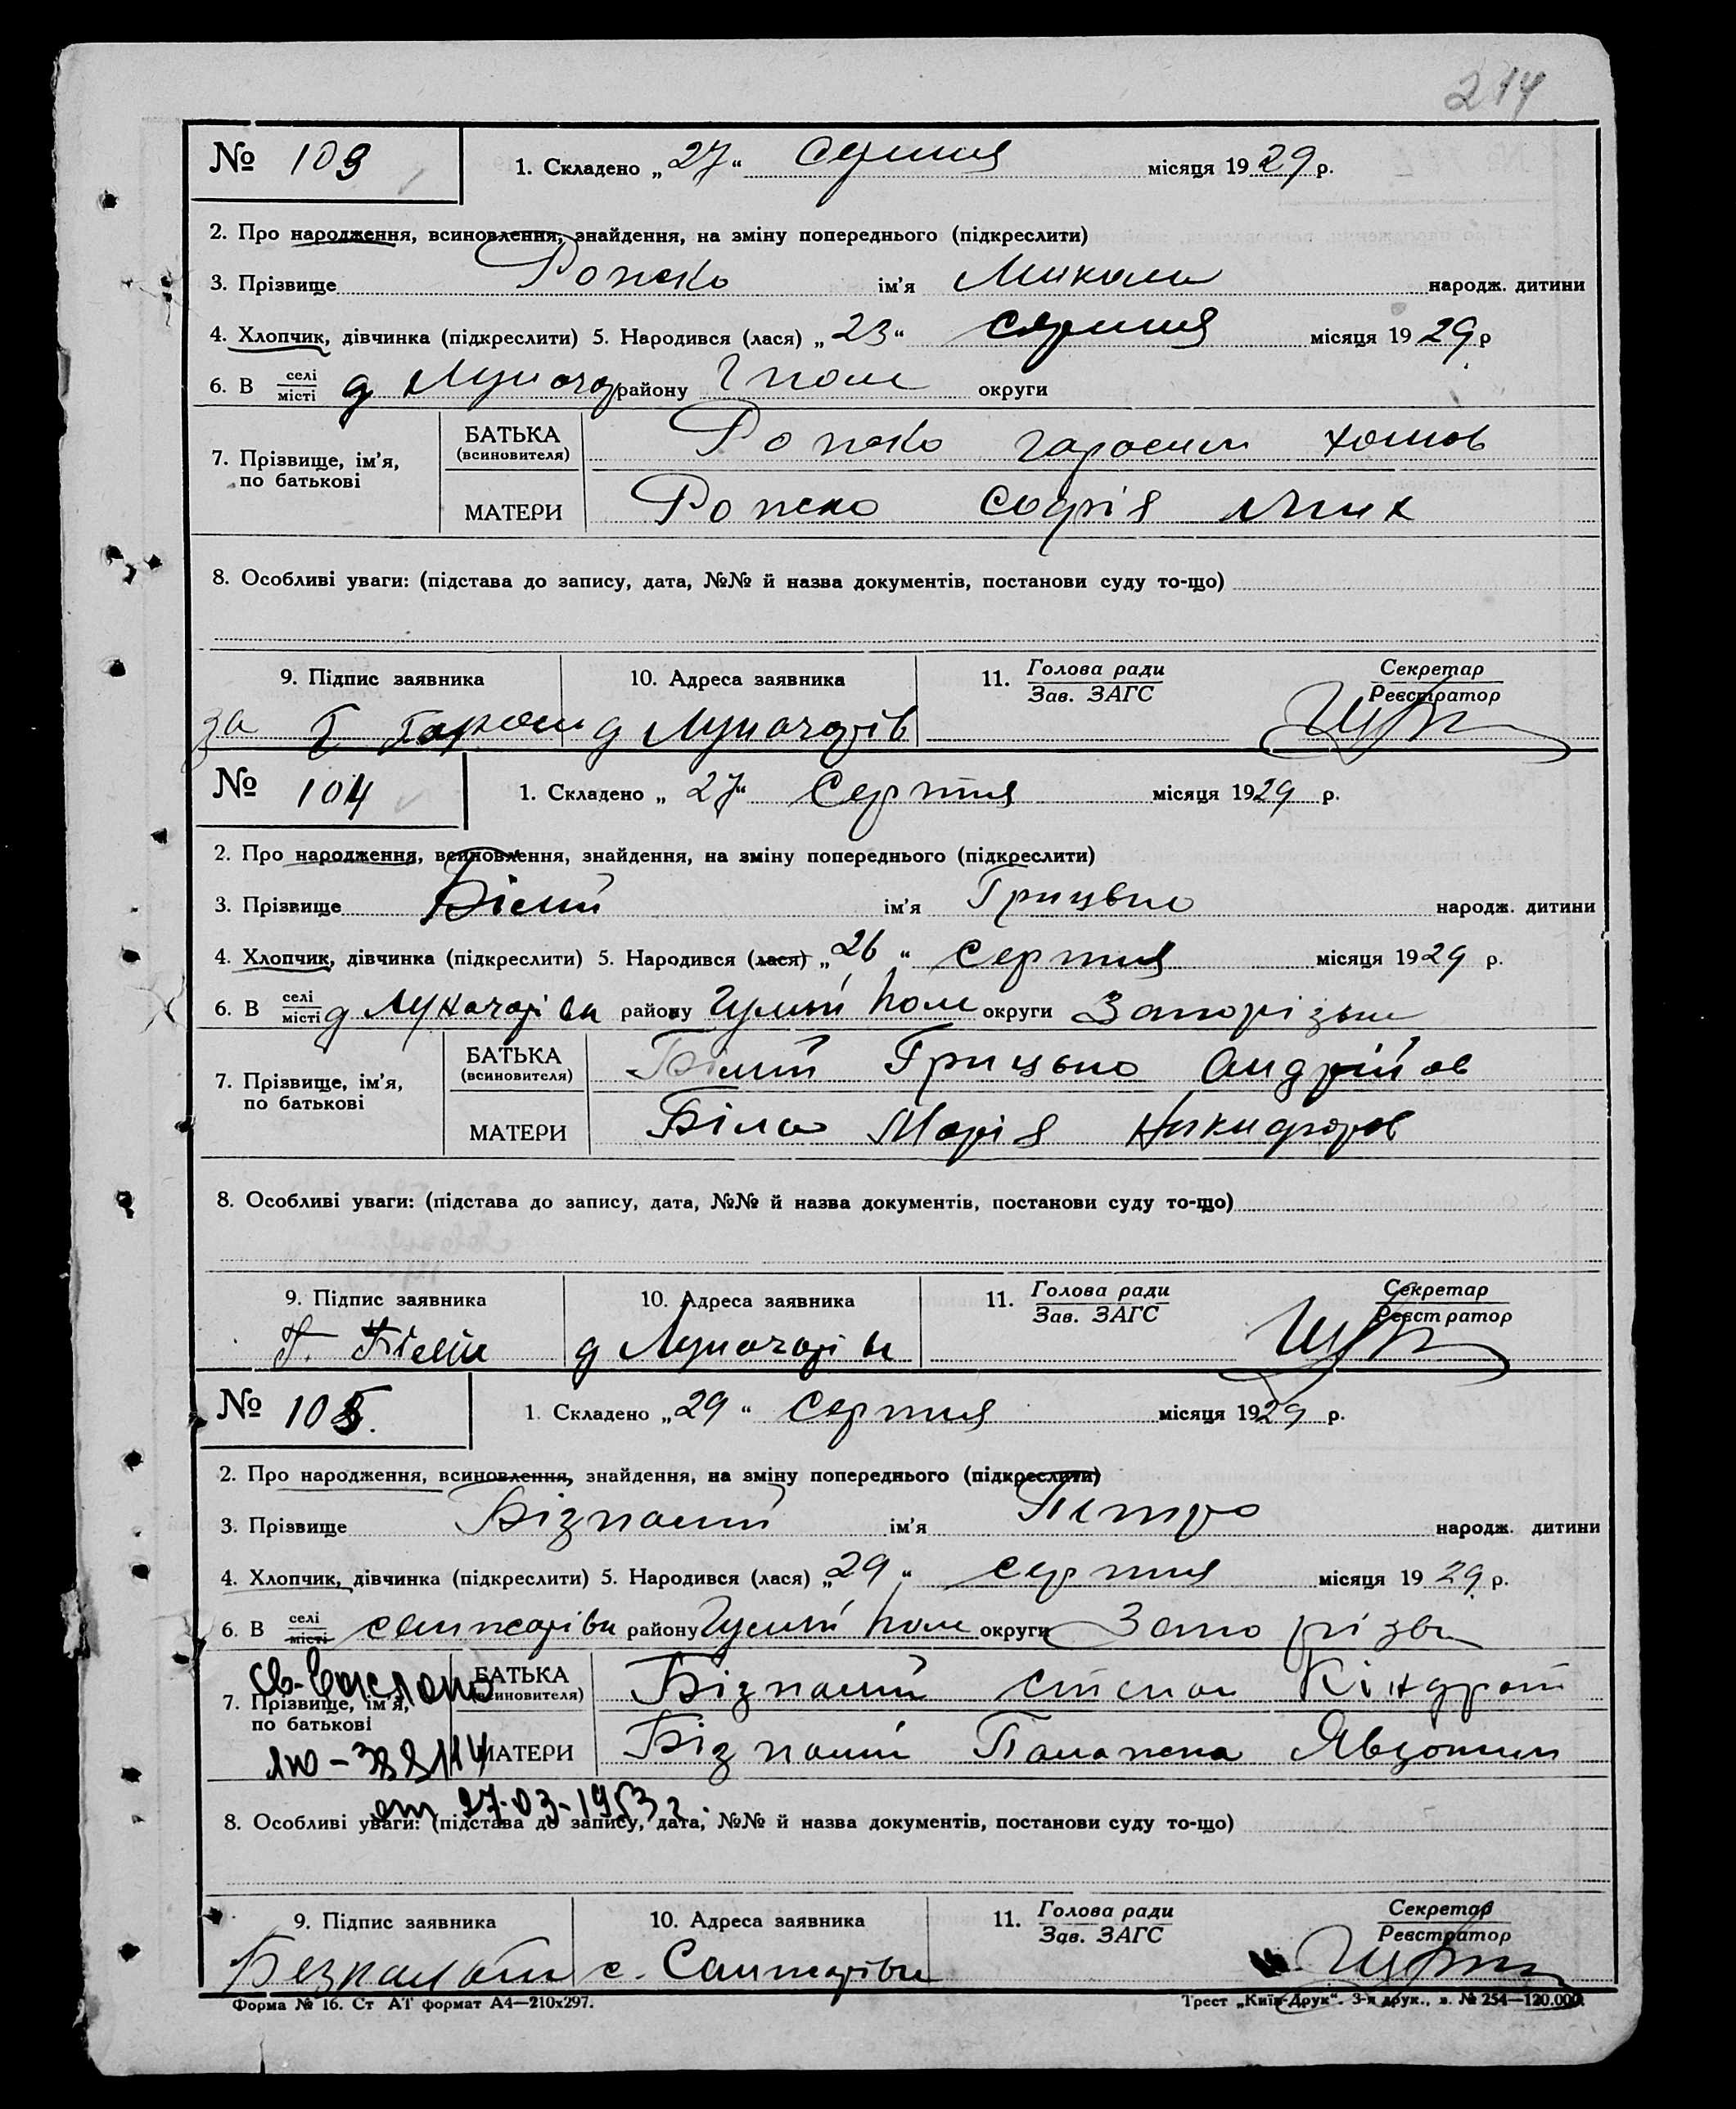 214
№ 103 1. Складено „27“ серпня місяця 1929 р.
2. Про народження, всиновлення, знайдення, на зміну попереднього (підкреслити)
3. Прізвище Рожко ім’я Микола народж. дитини
4. Хлопчик, дівчинка (підкреслити) 5. Народився (лася) „23“ серпня місяця 1929 р
6. В селі місті району Гполе округи
7. Прізвище, ім’я, по батькові
БАТЬКА (всиновителя) Рожко Гарасим Хомов
МАТЕРИ Рожко Софія Мих
8. Особливі уваги: (підстава до запису, дата, №№ й назва документів, постанови суду то-що)
9. Підпис заявника 10. Адреса заявника 11. Голова ради Зав. ЗАГС Секретар Реєстратор
за
№ 104 1. Складено „27“ Серпня місяця 1929 р.
2. Про народження, всиновлення, знайдення, на зміну попереднього (підкреслити)
3. Прізвище Білий ім’я Грицько народж. дитини
4. Хлопчик, дівчинка (підкреслити) 5. Народився (лася) „26“ серпня місяця 1929 р.
6. В селі місті району Гуляй Поле округи Запорізьк
7. Прізвище, ім’я, по батькові
БАТЬКА (всиновителя) Білий Грицько Андрійов
МАТЕРИ Біла Марія Никифоров
8. Особливі уваги: (підстава до запису, дата, №№ й назва документів, постанови суду то-що)
9. Підпис заявника 10. Адреса заявника 11. Голова ради Зав. ЗАГС Секретар Реєстратор
Г. Білий
№ 105. 1. Складено „29“ серпня місяця 1929 р.
2. Про народження, всиновлення, знайдення, на зміну попереднього (підкреслити)
3. Прізвище Бізпалий ім’я Петро народж. дитини
4. Хлопчик, дівчинка (підкреслити) 5. Народився (лася) „29“ серпня місяця 1929 р.
6. В селі місті району Гуляй Поле округи
7. Прізвище, ім’я, по батькові
БАТЬКА (всиновителя) Бізпалий Степан Кіндрат
МАТЕРИ Бізпалий Палажка Явдоким
от 27-03-1953 г.
8. Особливі уваги: (підстава до запису, дата, №№ й назва документів, постанови суду то-що)
9. Підпис заявника 10. Адреса заявника 11. Голова ради Зав. ЗАГС Секретар Реєстратор
Форма № 16. Ст АТ формат А4—210х297. Трест „Київ-Друк“. 3-я друк., з. № 254—120.000.